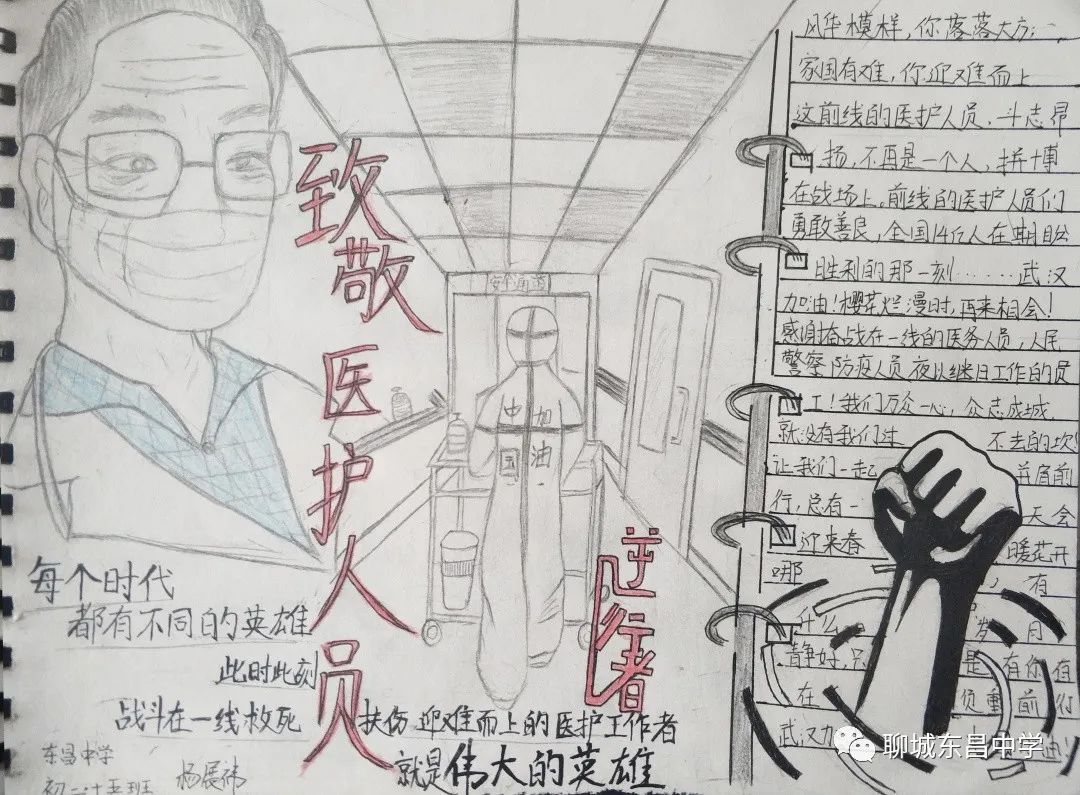 致敬医护人员
逆行者
安全通道
中国
加油
每个时代
都有不同的英雄
此时此刻
战斗在一线救死扶伤迎难而上的医护工作者
就是伟大的英雄
东昌中学
初二十五班 杨展祎
风华模样,你落落大方;
家国有难,你迎难而上
这前线的医护人员,斗志昂
扬,不再是一个人,拼博
在战场上,前线的医护人员们
勇敢善良,全国14亿人在期盼
胜利的那一刻……武汉
加油!樱花烂漫时,再来相会!
感谢奋战在一线的医务人员,人民
警察,防疫人员,夜以继日工作的员
工!我们万众一心,众志成城,
就没有我们过不去的坎!
让我们一起并肩前
行,总有一天会
迎来春暖花开
哪有
什么岁月
静好,只是有你们在
负重前行
武汉加
聊城东昌中学